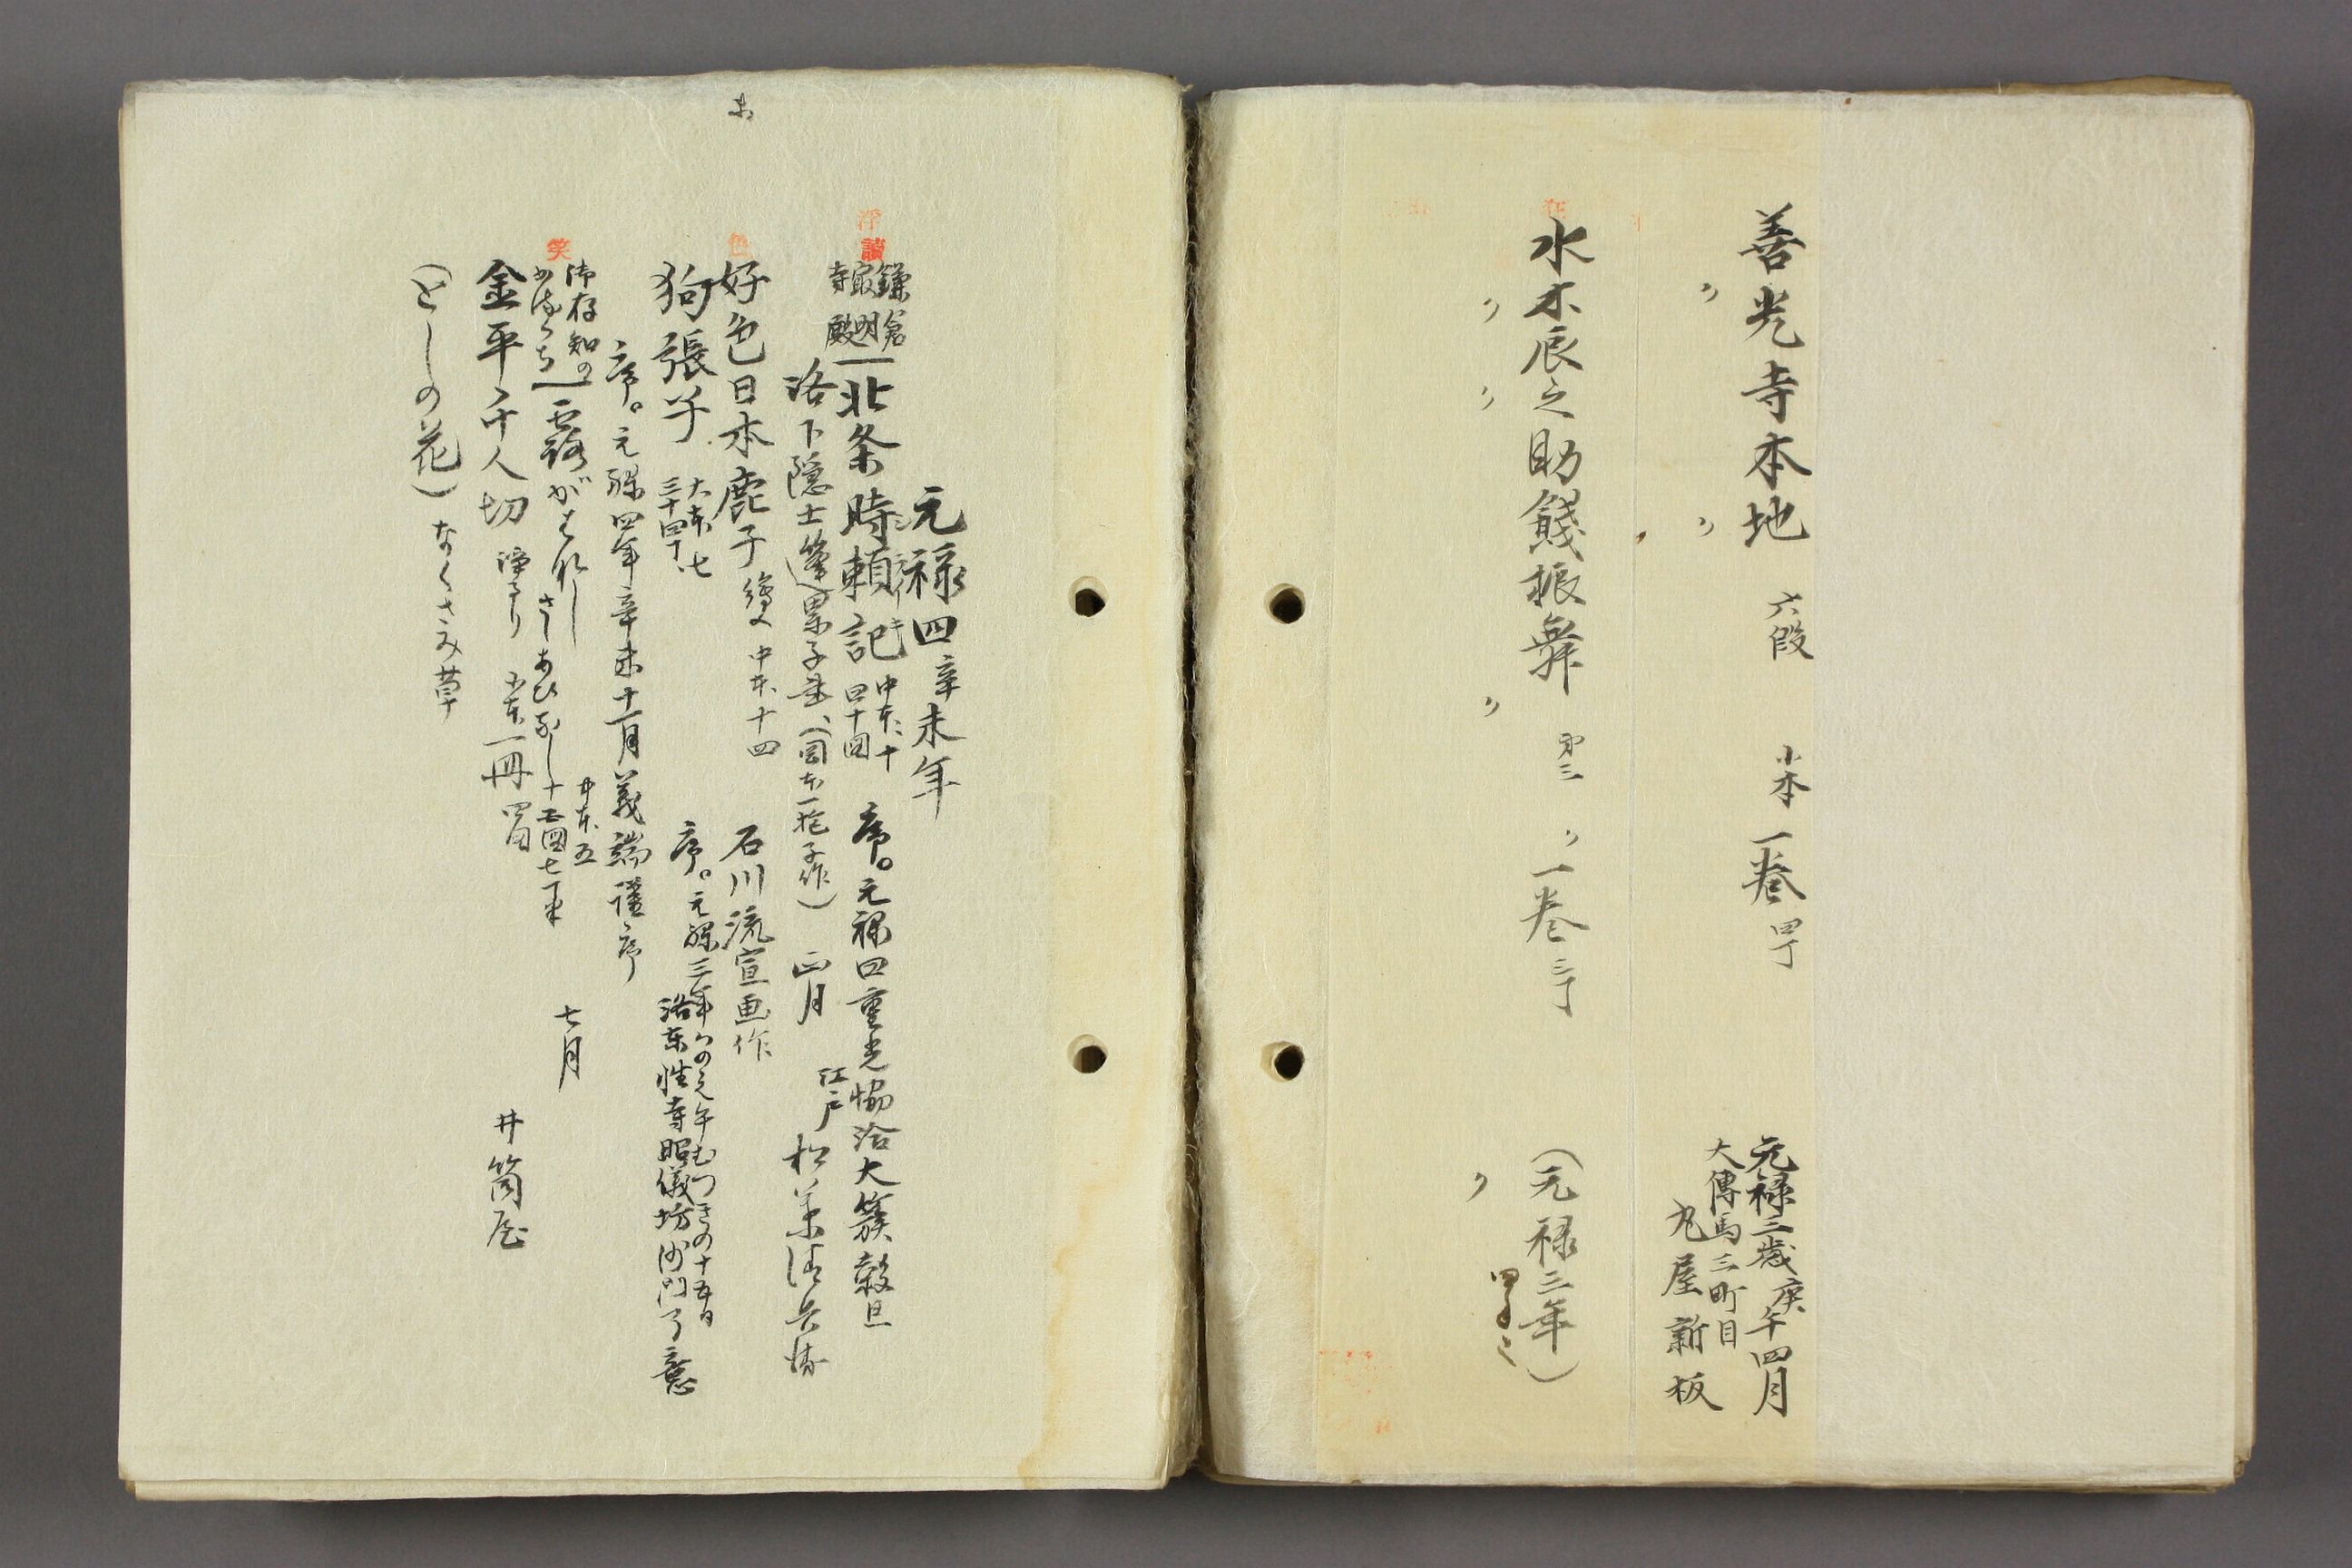 善光寺本地 六段 小本 一巻 四丁
元禄三歳庚午四月
大傳馬三町目
丸屋新板
〃 〃
狂
水木辰之助餞振舞 第三 〃 一巻 三丁 (元禄三年)
〃 〃 〃 〃
元禄四辛未年
浮 讀
鎌倉
最明
寺殿
北条時頼記 中本、十 四十圖 序。元禄四重光協洽大簇穀旦
洛下隠士蓬累子 (圓水一枹子作) 正月 江戸 松葉清兵衛
色
好色日本鹿子 繪入 中本、十四 石川流宣画作
狗張子 大本、七 三十四丁、 序。元禄三年 かのえ午むつきの十五日
洛本性寺昭儀坊沙門了意
序。元禄四年辛未十一月義端謹序
笑
御存知の
露がはなし 中本、五 七月
金平千人切 浄るり 小本 一冊 井筒屋
(としの花) なくさみ草
未